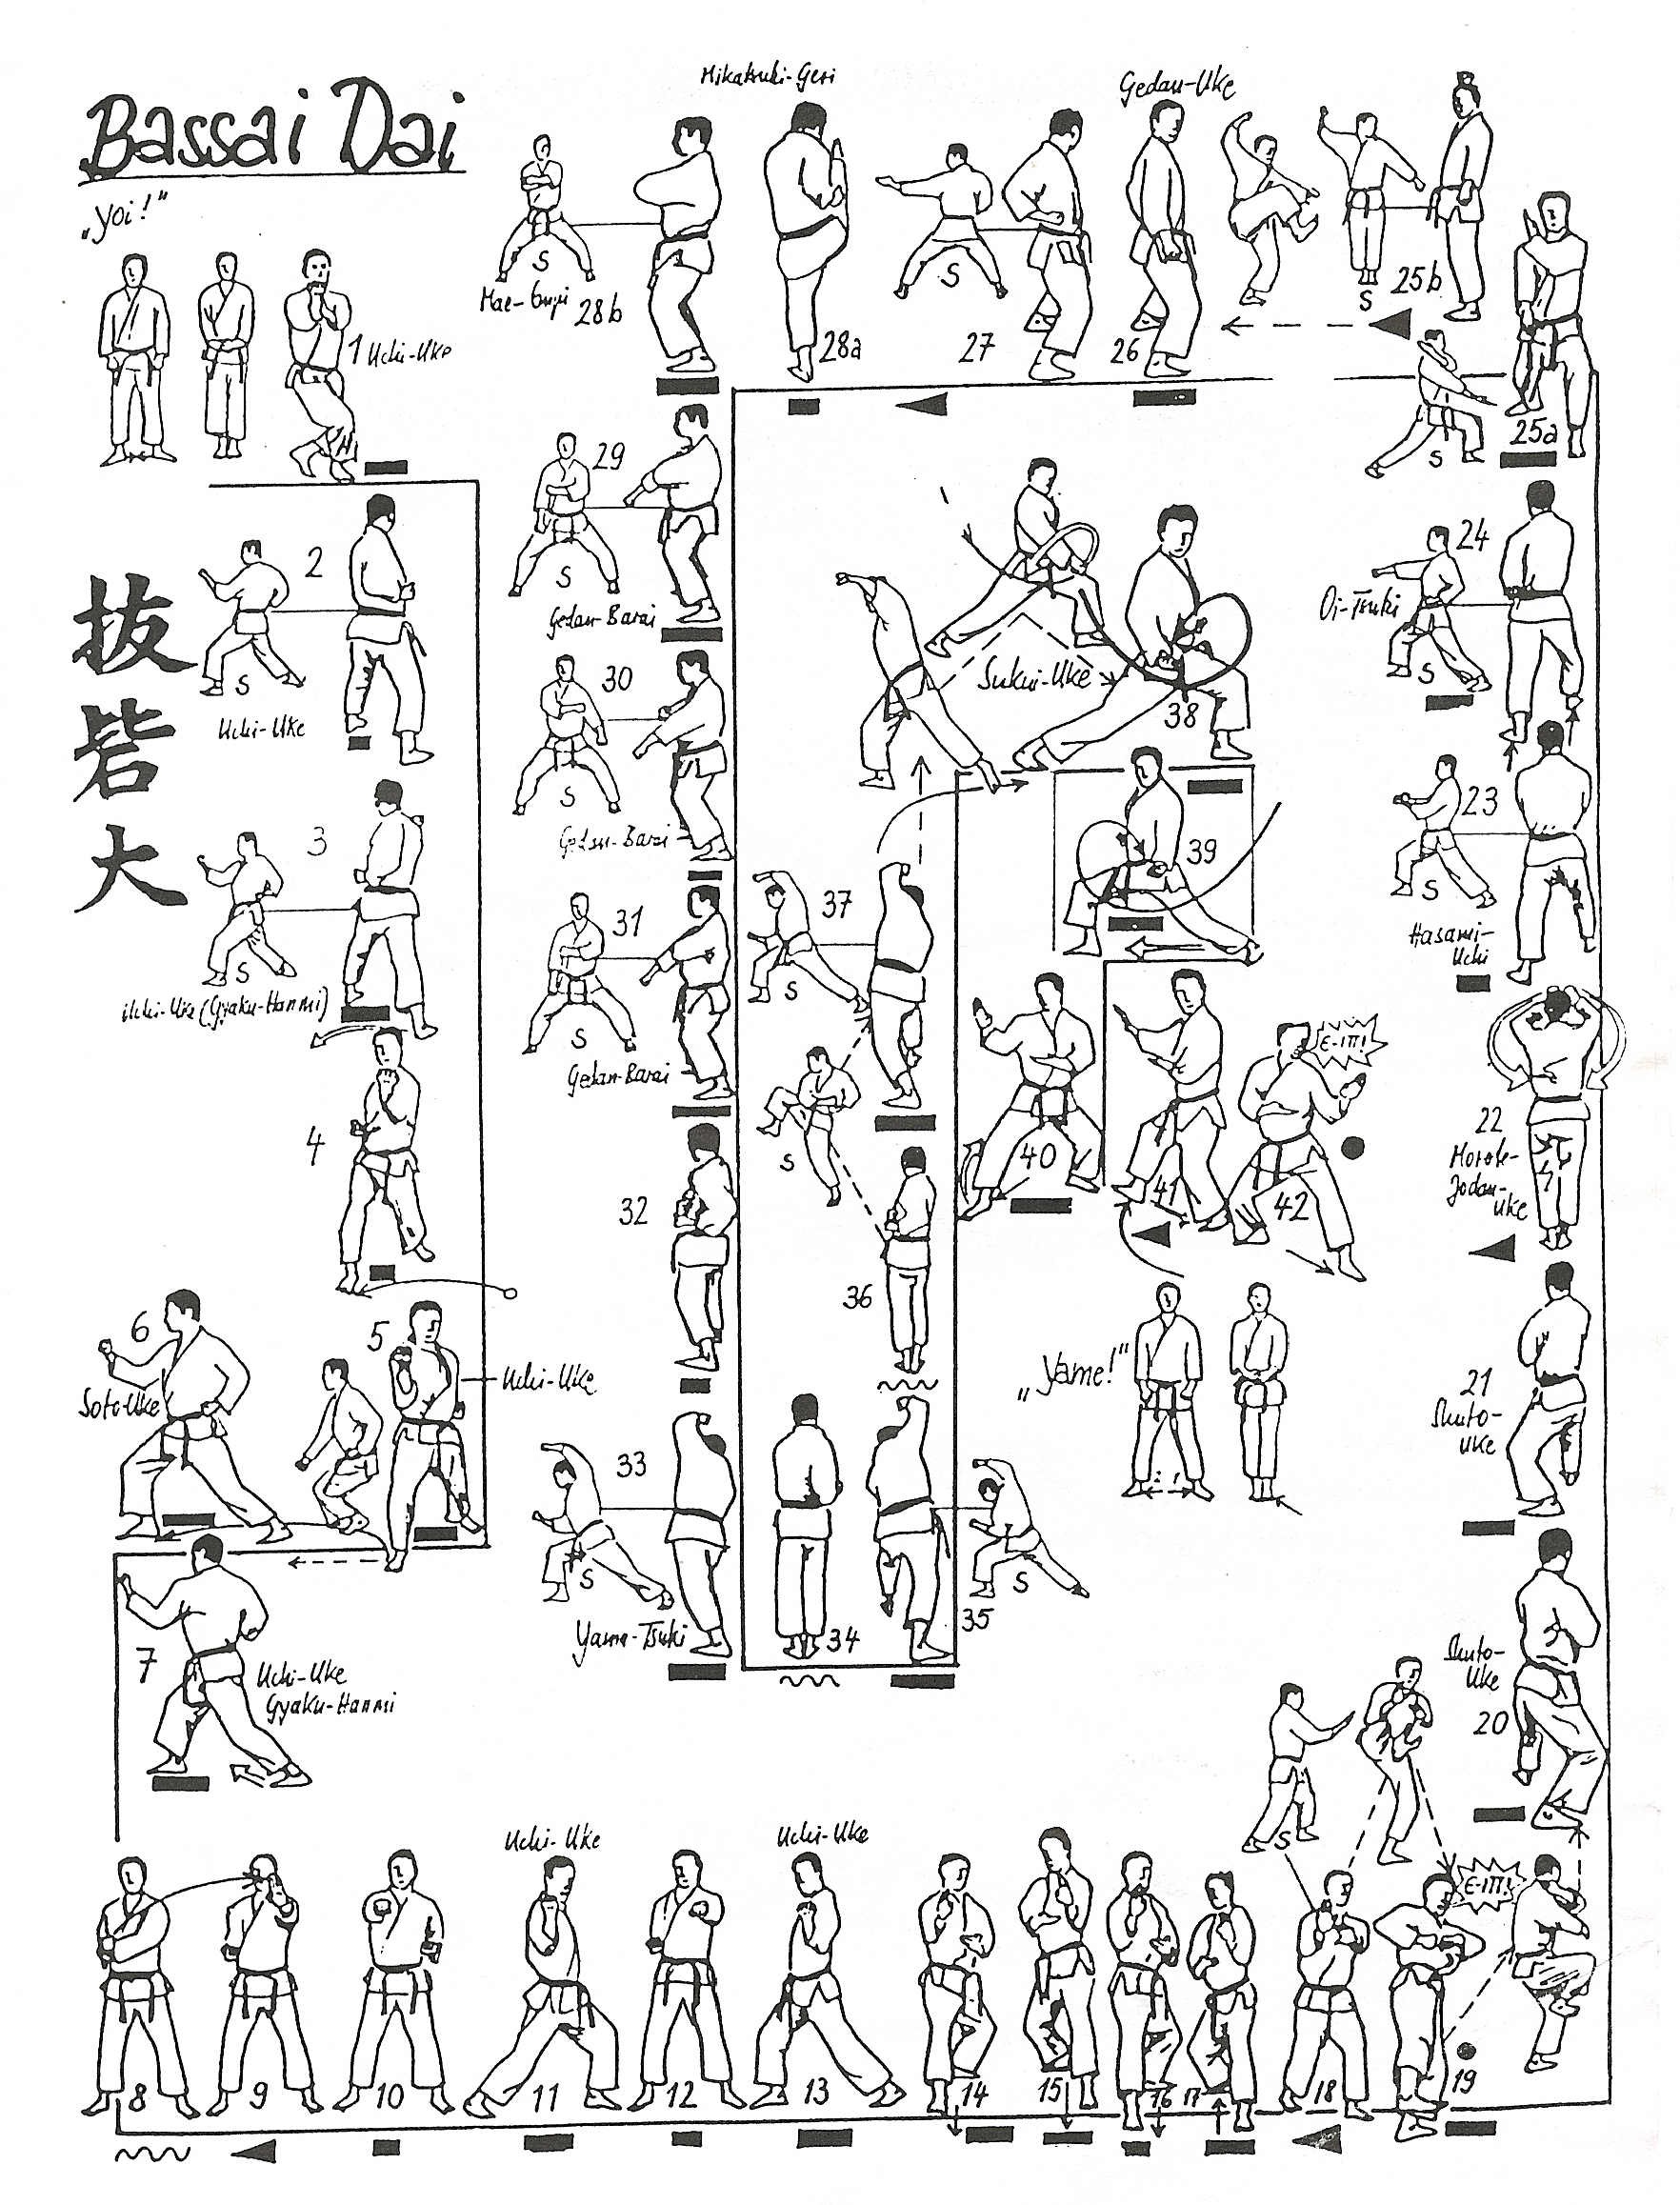 Bassai Dai
„Yoi!"
抜
砦
大
1 Uchi-Uke
2
S
Uchi-Uke
3
S
Uchi-Uke (Gyaku-Hanmi)
4
5
Uchi-Uke
6
Soto-Uke
7
Uchi-Uke
Gyaku-Hanmi
8
9
10
Uchi-Uke
11
12
Uchi-Uke
13
14
15
16
17
18
S
19
E-ITI!
Shuto-
Uke
20
21
Shuto-
Uke
22
Morote-
Jodan-
Uke
23
S
Hasami-
Uchi
24
Oi-Tsuki
S
25a
S
25b
S
Gedan-Uke
26
27
S
Mikatsuki-Geri
28a
28b
S
29
S
Gedan-Barai
30
S
Gedan-Barai
31
S
Gedan-Barai
32
33
S
Yama-Tsuki
34
35
S
36
S
37
S
Sukui-Uke
38
39
40
41
42
E-ITI!
„Yame!"